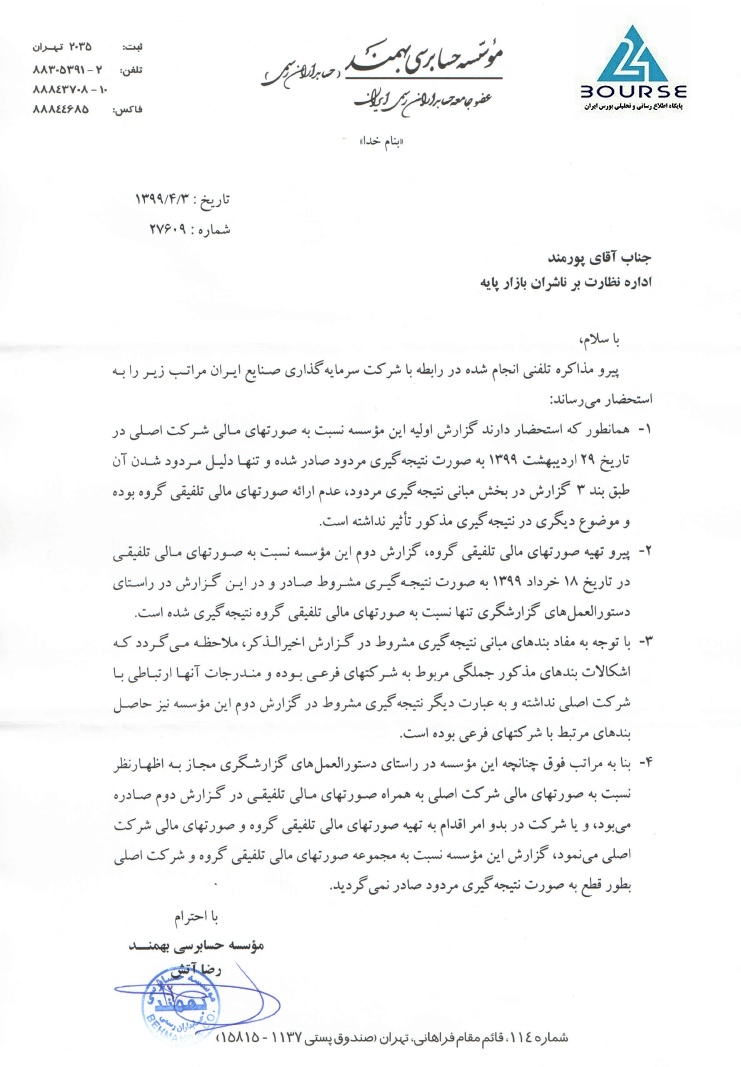 24
BOURSE
پایگاه اطلاع رسانی و تحلیلی بورس ایران
مؤسسه حسابرسی بهمند (حسابداران رسمی)
عضو جامعه حسابداران رسمی ایران
ثبت: ۲۰۳۵ تهران
تلفن: ۲ - ۸۸۳۰۵۳۹۱
۱۰ - ۸۸۸٤۳۷۰۸
فاکس: ۸۸۸٤٤۶۸۵
«بنام خدا»
تاریخ : ۱۳۹۹/۴/۳
شماره : ۲۷۶۰۹
جناب آقای پورمند
اداره نظارت بر ناشران بازار پایه
با سلام،
پیرو مذاکره تلفنی انجام شده در رابطه با شرکت سرمایه گذاری صنایع ایران مراتب زیر را به
استحضار می‌رساند:
۱- همانطور که استحضار دارند گزارش اولیه این مؤسسه نسبت به صورتهای مالی شرکت اصلی در
تاریخ ۲۹ اردیبهشت ۱۳۹۹ به صورت نتیجه‌گیری مردود صادر شده و تنها دلیل مردود شدن آن
طبق بند ۳ گزارش در بخش مبانی نتیجه‌گیری مردود، عدم ارائه صورتهای مالی تلفیقی گروه بوده
و موضوع دیگری در نتیجه‌گیری مذکور تأثیر نداشته است.
۲- پیرو تهیه صورتهای مالی تلفیقی گروه، گزارش دوم این مؤسسه نسبت به صورتهای مالی تلفیقی
در تاریخ ۱۸ خرداد ۱۳۹۹ به صورت نتیجه‌گیری مشروط صادر و در این گزارش در راستای
دستورالعمل‌های گزارشگری تنها نسبت به صورتهای مالی تلفیقی گروه نتیجه‌گیری شده است.
۳- با توجه به مفاد بندهای مبانی نتیجه‌گیری مشروط در گزارش اخیرالذکر، ملاحظه می‌گردد که
اشکالات بندهای مذکور جملگی مربوط به شرکتهای فرعی بوده و مندرجات آنها ارتباطی با
شرکت اصلی نداشته و به عبارت دیگر نتیجه‌گیری مشروط در گزارش دوم این مؤسسه نیز حاصل
بندهای مرتبط با شرکتهای فرعی بوده است.
۴- بنا به مراتب فوق چنانچه این مؤسسه در راستای دستورالعمل‌های گزارشگری مجاز به اظهارنظر
نسبت به صورتهای مالی شرکت اصلی به همراه صورتهای مالی تلفیقی در گزارش دوم صادره
می‌بود، و یا شرکت در بدو امر اقدام به تهیه صورتهای مالی تلفیقی گروه و صورتهای مالی شرکت
اصلی می‌نمود، گزارش این مؤسسه نسبت به مجموعه صورتهای مالی تلفیقی گروه و شرکت اصلی
بطور قطع به صورت نتیجه‌گیری مردود صادر نمی‌گردید.
با احترام
مؤسسه حسابرسی بهمنـد
رضا آتش
مؤسسه حسابرسی
بهمند
حسابداران رسمی
شماره ۱۱٤، قائم مقام فراهانی، تهران (صندوق پستی ۱۱۳۷ - ۱۵۸۱۵)